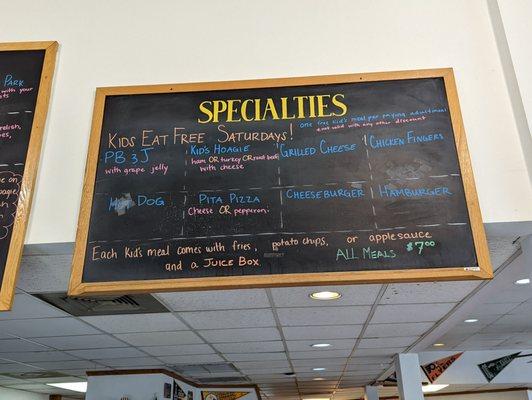 SPECIALTIES
one free kid's meal per paying adult meal
not valid with any other discount
KIDS EAT FREE SATURDAYS!
PB & J
with grape jelly
KID'S HOAGIE
ham OR turkey OR roast beef
with cheese
GRILLED CHEESE
CHICKEN FINGERS
HOT DOG
PITA PIZZA
Cheese OR pepperoni
CHEESEBURGER
HAMBURGER
EACH KID'S MEAL COMES WITH FRIES, POTATO CHIPS, OR APPLESAUCE
AND A JUICE BOX.
ALL MEALS $7.00
PARK
with your